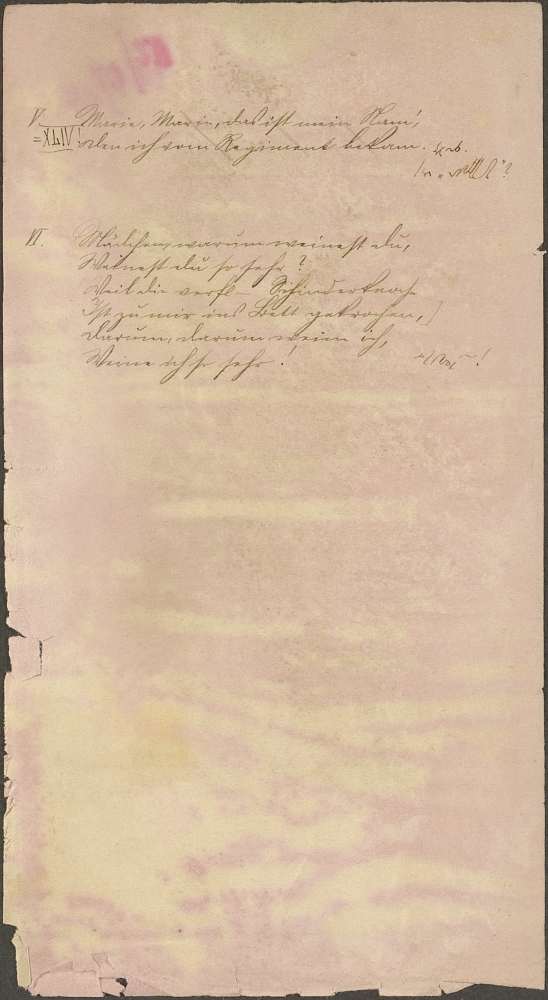 V. Marie, Marie, das ist mein Nam',
= XLIV! den ich vom Regiment bekam.
VI. Mädchen, warum weinest du,
Weinest du so sehr?
Weil die verfl– Schinderknoch
Ist zu mir ins Bett gekrochen,]
Darum, darum weine ich,
Weine ich so sehr!